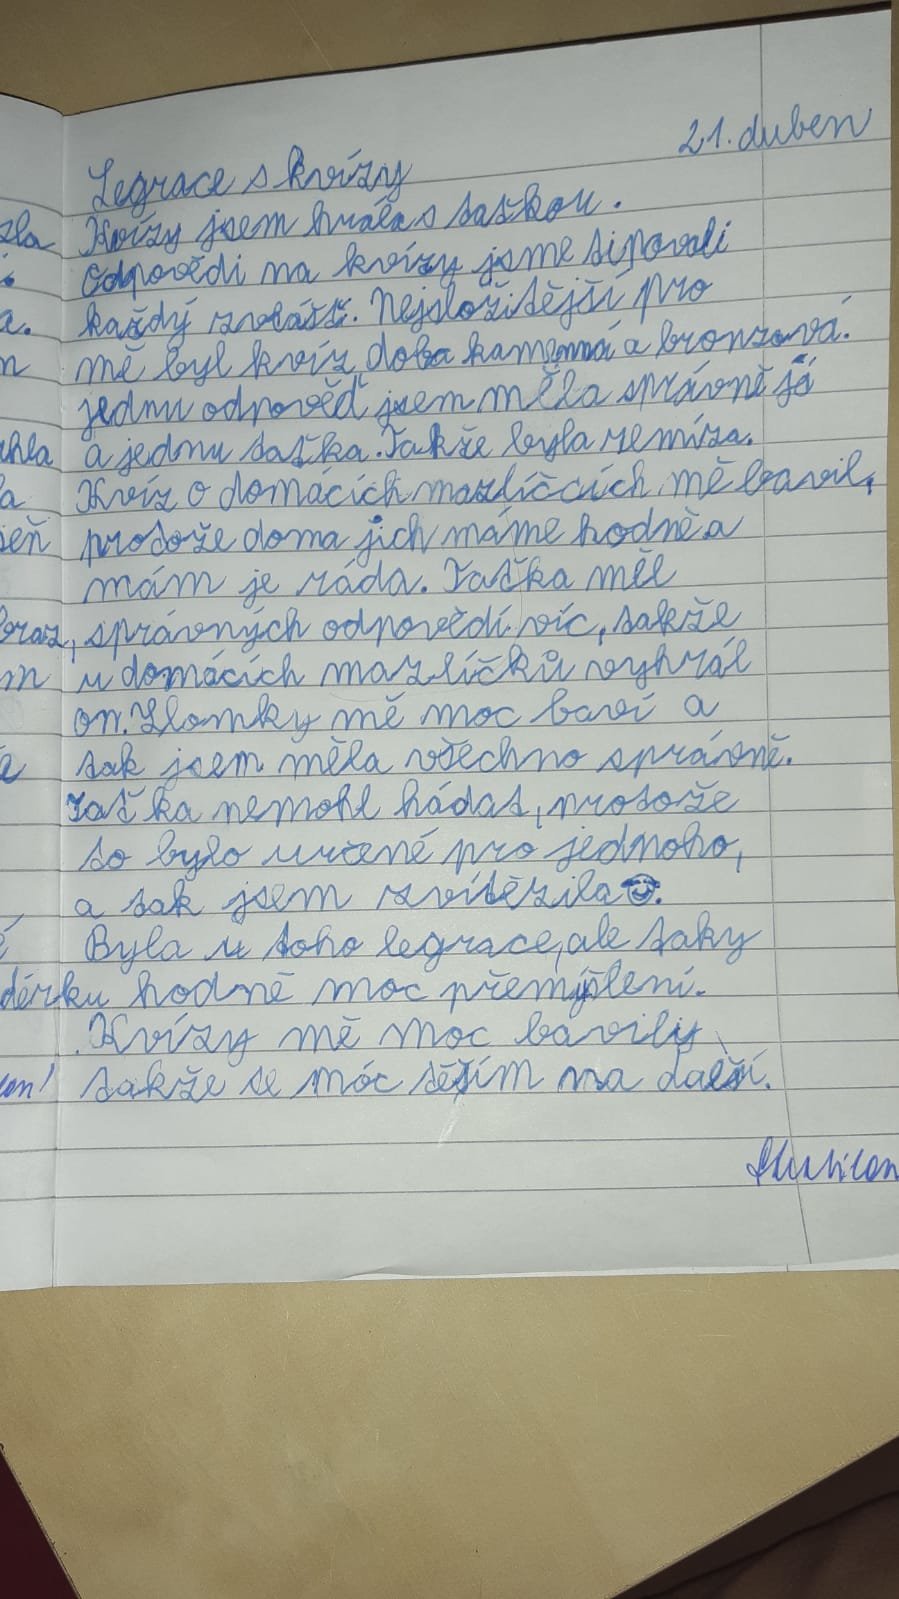 21. duben
Legrace s kvízy
Kvízy jsem hrála s taťkou.
Odpovědi na kvízy jsme tipovali
každý zvlášť. Nejsložitější pro
mě byl kvíz doba kamenná a bronzová.
jednu odpověď jsem měla správně já
a jednu taťka. Takže byla remíza.
Kvíz o domácích mazlíčcích mě bavil,
protože doma jich máme hodně a
mám je ráda. Taťka měl
správných odpovědí víc, takže
u domácích mazlíčků vyhrál
on. Zlomky mě moc baví a
tak jsem měla všechno správně.
Taťka nemohl hádat, protože
to bylo určené pro jednoho,
a tak jsem zvítězila.
Byla u toho legrace, ale taky
hodně moc přemýšlení.
Kvízy mě moc bavily
takže se móc těším na další.